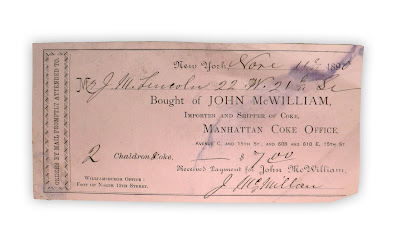 ORDERS BY MAIL PROMPTLY ATTENDED TO.
New York, Nov 11th 189
Mr J. M. Lincoln 22 W. 21st St
Bought of JOHN McWILLIAM,
IMPORTER AND SHIPPER OF COKE,
MANHATTAN COKE OFFICE
AVENUE C, AND 15TH ST., AND 608 AND 610 E. 15TH ST
2 Chaldron Coke, $7.00
Received Payment for John McWilliam,
WILLIAMSBURGH OFFICE:
FOOT OF NORTH 12TH STREET.
J McMillan